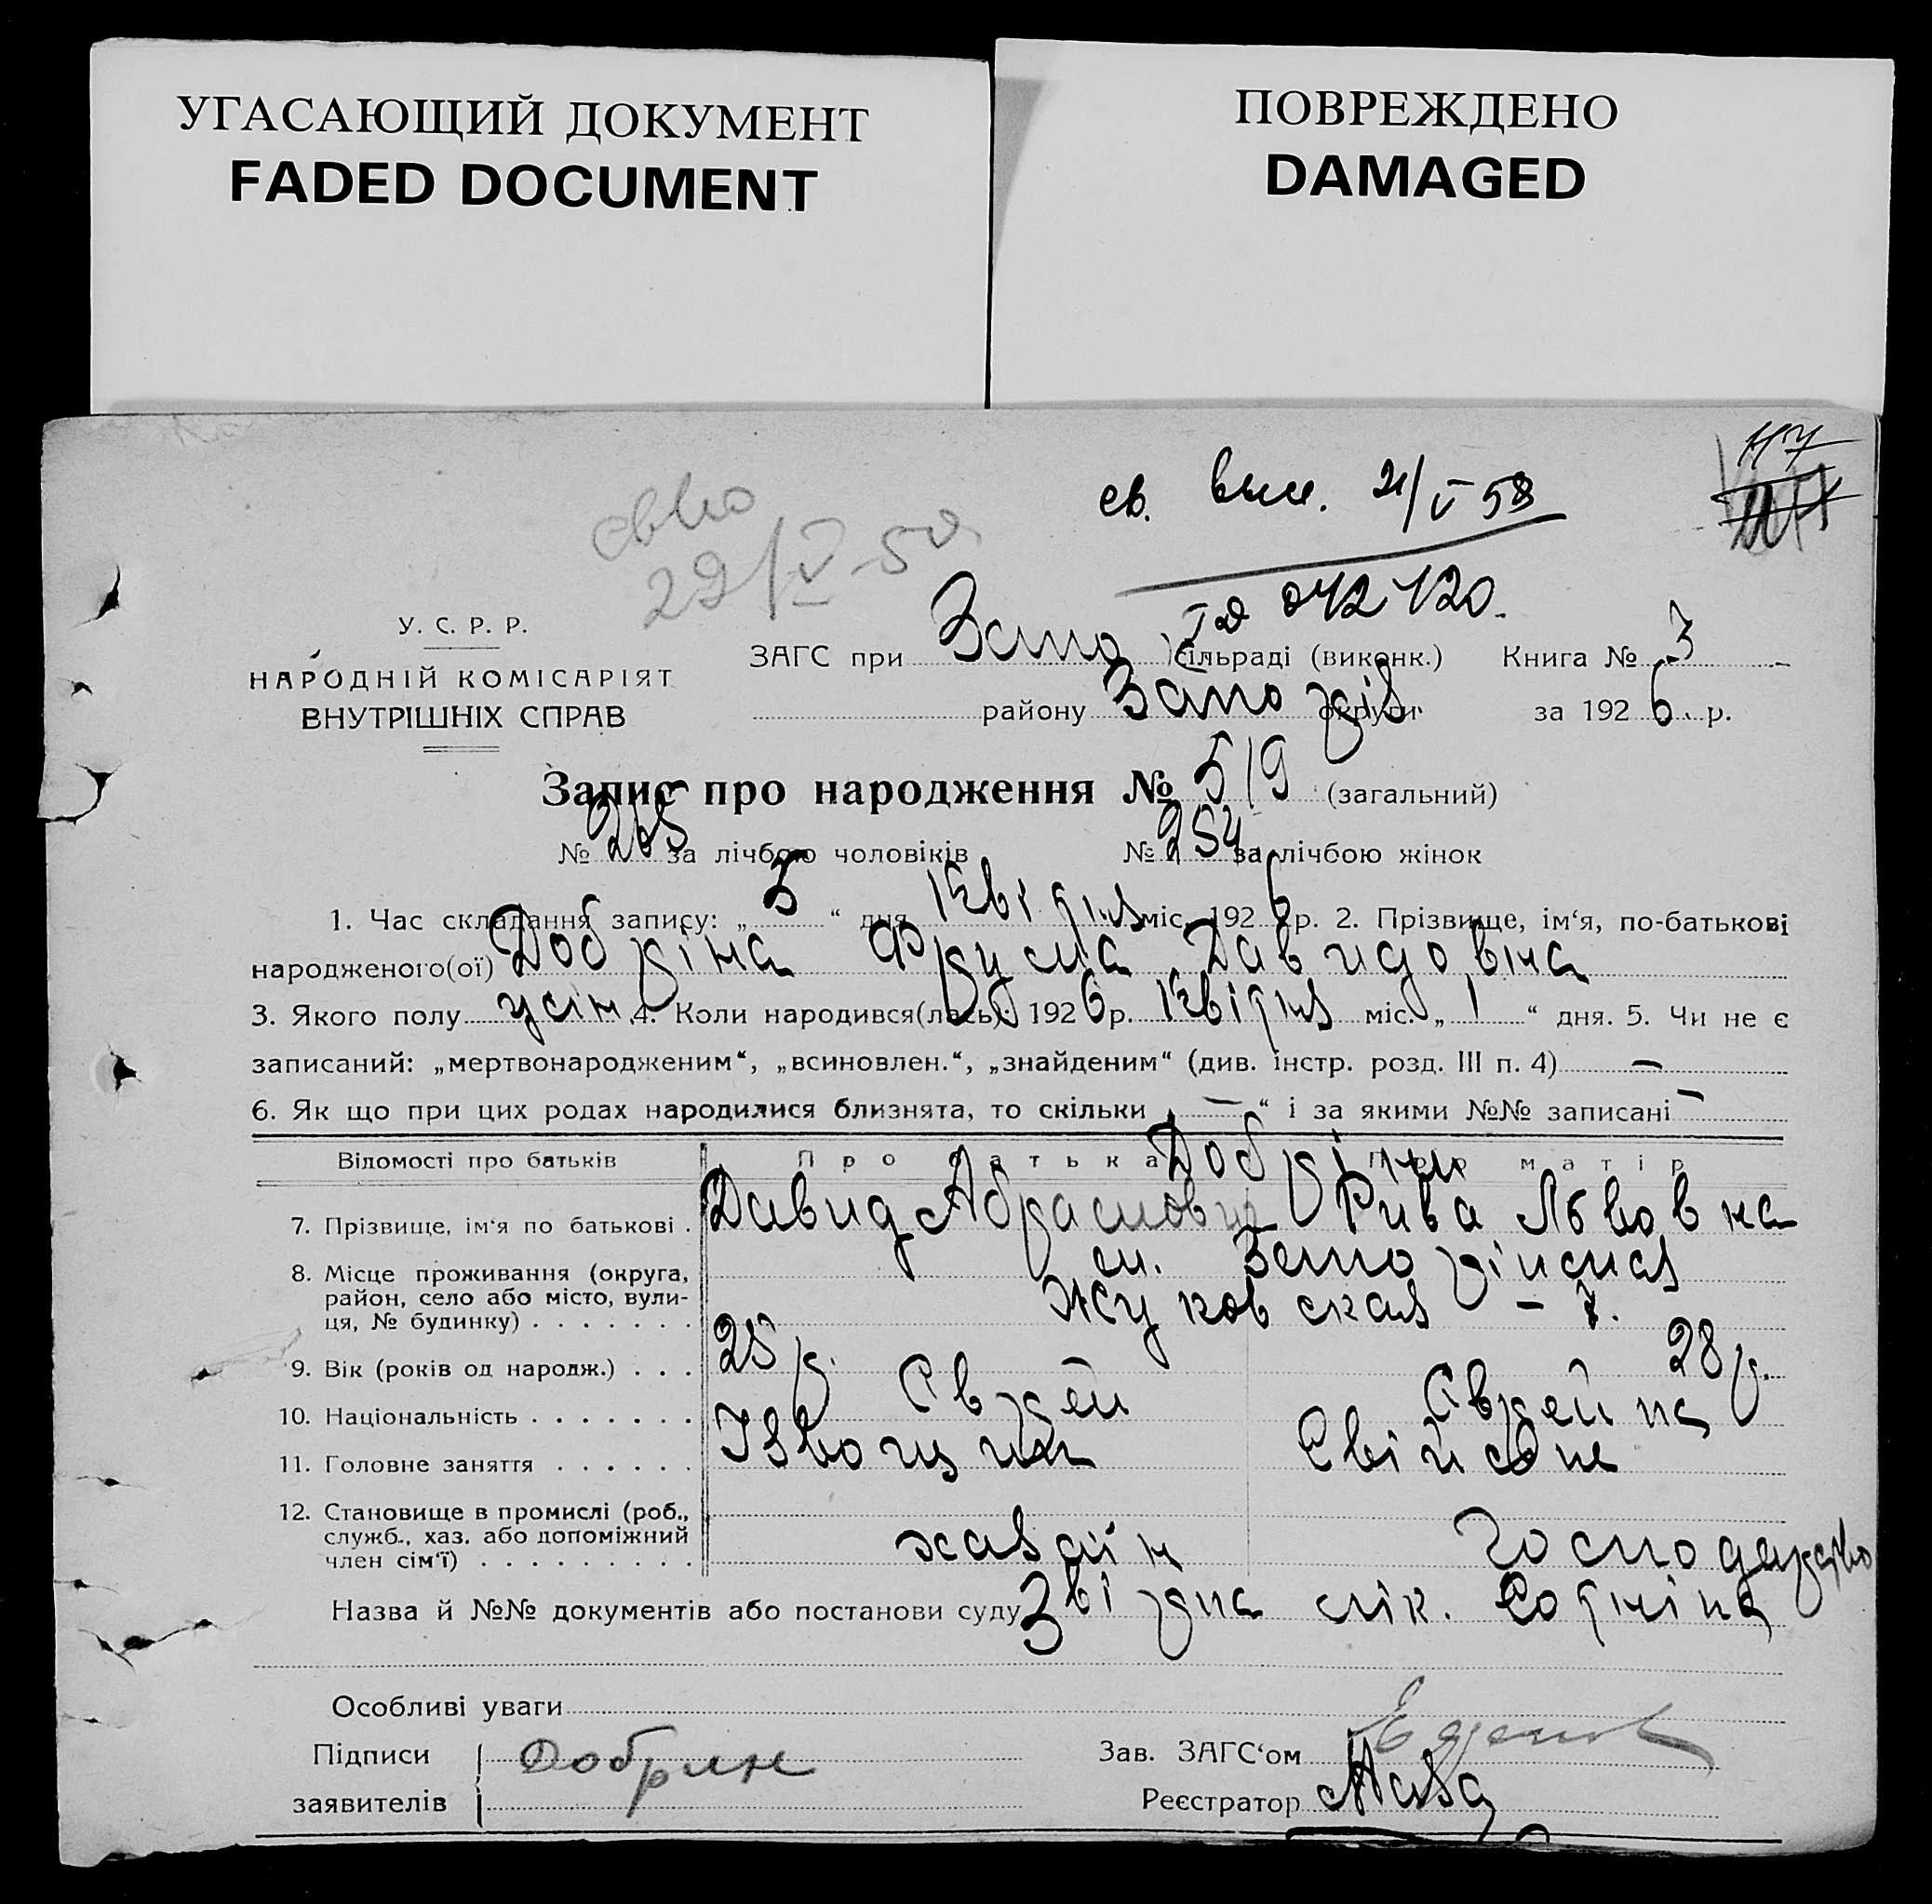 УГАСАЮЩИЙ ДОКУМЕНТ
FADED DOCUMENT
ПОВРЕЖДЕНО
DAMAGED
117
св. вын. 21/V 58
29/V-58
042420.
У. С. Р. Р.
НАРОДНІЙ КОМІСАРІЯТ
ВНУТРІШНІХ СПРАВ
ЗАГС при Запо сільраді (виконк.) Книга № 3
району Запоріз округи за 1926 р.
Запис про народження № 519 (загальний)
№ 265 за лічбою чоловіків № 254 за лічбою жінок
1. Час складання запису: „5“ дня Квітня міс. 1926 р. 2. Прізвище, ім‘я, по-батькові
народженого(ої) Добріна Фрума Давидовіна
3. Якого полу жін. 4. Коли народився(лась): 1926 р. Квітня міс. „1“ дня. 5. Чи не є
записаний: „мертвонародженим“, „всиновлен.“, „знайденим“ (див. інстр. розд. III п. 4) —
6. Як що при цих родах народилися близнята, то скільки „—“ і за якими №№ записані —
Відомості про батьків Про батька Про матір
Добріни
7. Прізвище, ім‘я по батькові . Давид Абрамович Рива Львовна
8. Місце проживання (округа, район, село або місто, вулиця, № будинку) . . . . . . . м.
Жуковская - 7.
9. Вік (років од народж.) . . . 25 р. 28 р.
10. Національність . . . . . . . Єврей Єврейка
11. Головне заняття . . . . . . Ізвощик Свійське
12. Становище в промислі (роб., служб., хаз. або допоміжний член сім‘ї) . . . . . . . . . хазяїн господарство
Назва й №№ документів або постанови суду Звідка лік. Сотніка
Особливі уваги
Підписи заявителів Добрин
Зав. ЗАГС‘ом
Реєстратор